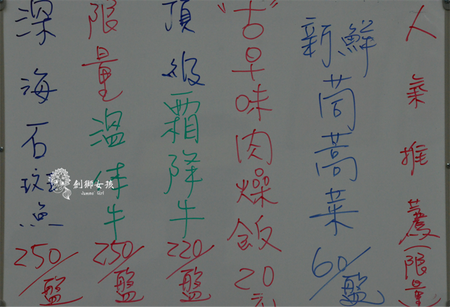 人氣推薦(限量
新鮮茼蒿菜 60/盤
"古"早味肉燥飯 20元
頂級霜降牛 220/盤
限量溫体牛 250/盤
深海石斑魚 250/盤